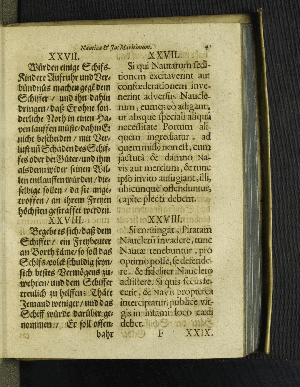 Nautica & Jus Maritimum. 41
XXVII.
Würden einige Schifs-
Kindere Aufruhr und Ver-
bündnüs machen gegē dem
Schiffer / und ihn dahin
dringen / daß Er ohne son-
derliche Noth in einen Ha-
ven lauffen müste / dahin Er
nicht bescheiden / mit Ver-
lust un̄ Schaden des Schif-
fes oder der Güter / und ihm
alsdenn wider seinen Wil-
len entlauffen würden / die-
selbige sollen / da sie ange-
troffen / an ihrem Leben
höchsten gestraffet werden.
XXVIII.
Begebe es sich / daß dem
Schiffer / ein Freybeuter
an Borth käme / so soll das
Schifsvolck schuldig seyn /
sich bestes Vermögens zu
wehren / und dem Schiffer
treulich zu helffen: Thäte
Jemand weniger / und das
Schiff würde darüber ge-
nommen / Er soll offen-
bahr
XXVII.
Si qui Nautarum sedi-
tionem excitaverint aut
confœderationem inve-
nerint adversus Naucle-
rum, eumq; eò adigant,
ut absque speciali aliquâ
necessitate Portum ali-
quem ingrediatur, ad
quem missus non est, cum
jacturâ & damno Na-
vis aut mercium, & tunc
ipso invito aufugiant, illi,
ubicunque offenduntur,
capite plecti debent.
XXVIII.
Si contingat, Piratam
Nauclerū invadere, tunc
Nautæ tenebuntur, pro
optimo posse, se defende-
re, & fideliter Nauclero
adsistere. Si quis secùs fe-
cerit, & Navis propterea
interciperatur, publicè vir-
gis in infami loco cædi
debet.
F XXIX.